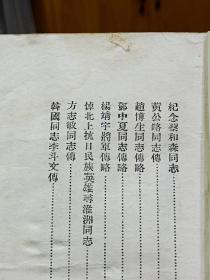 紀念蔡和森同志……………
黃公略同志傳……………
趙博生同志傳略……………
鄧中夏同志傳略……………
楊靖宇將軍傳略……………
悼北上抗日民族英雄尋淮洲同志……
方志敏同志傳……………
韓國同志李斗文傳……………